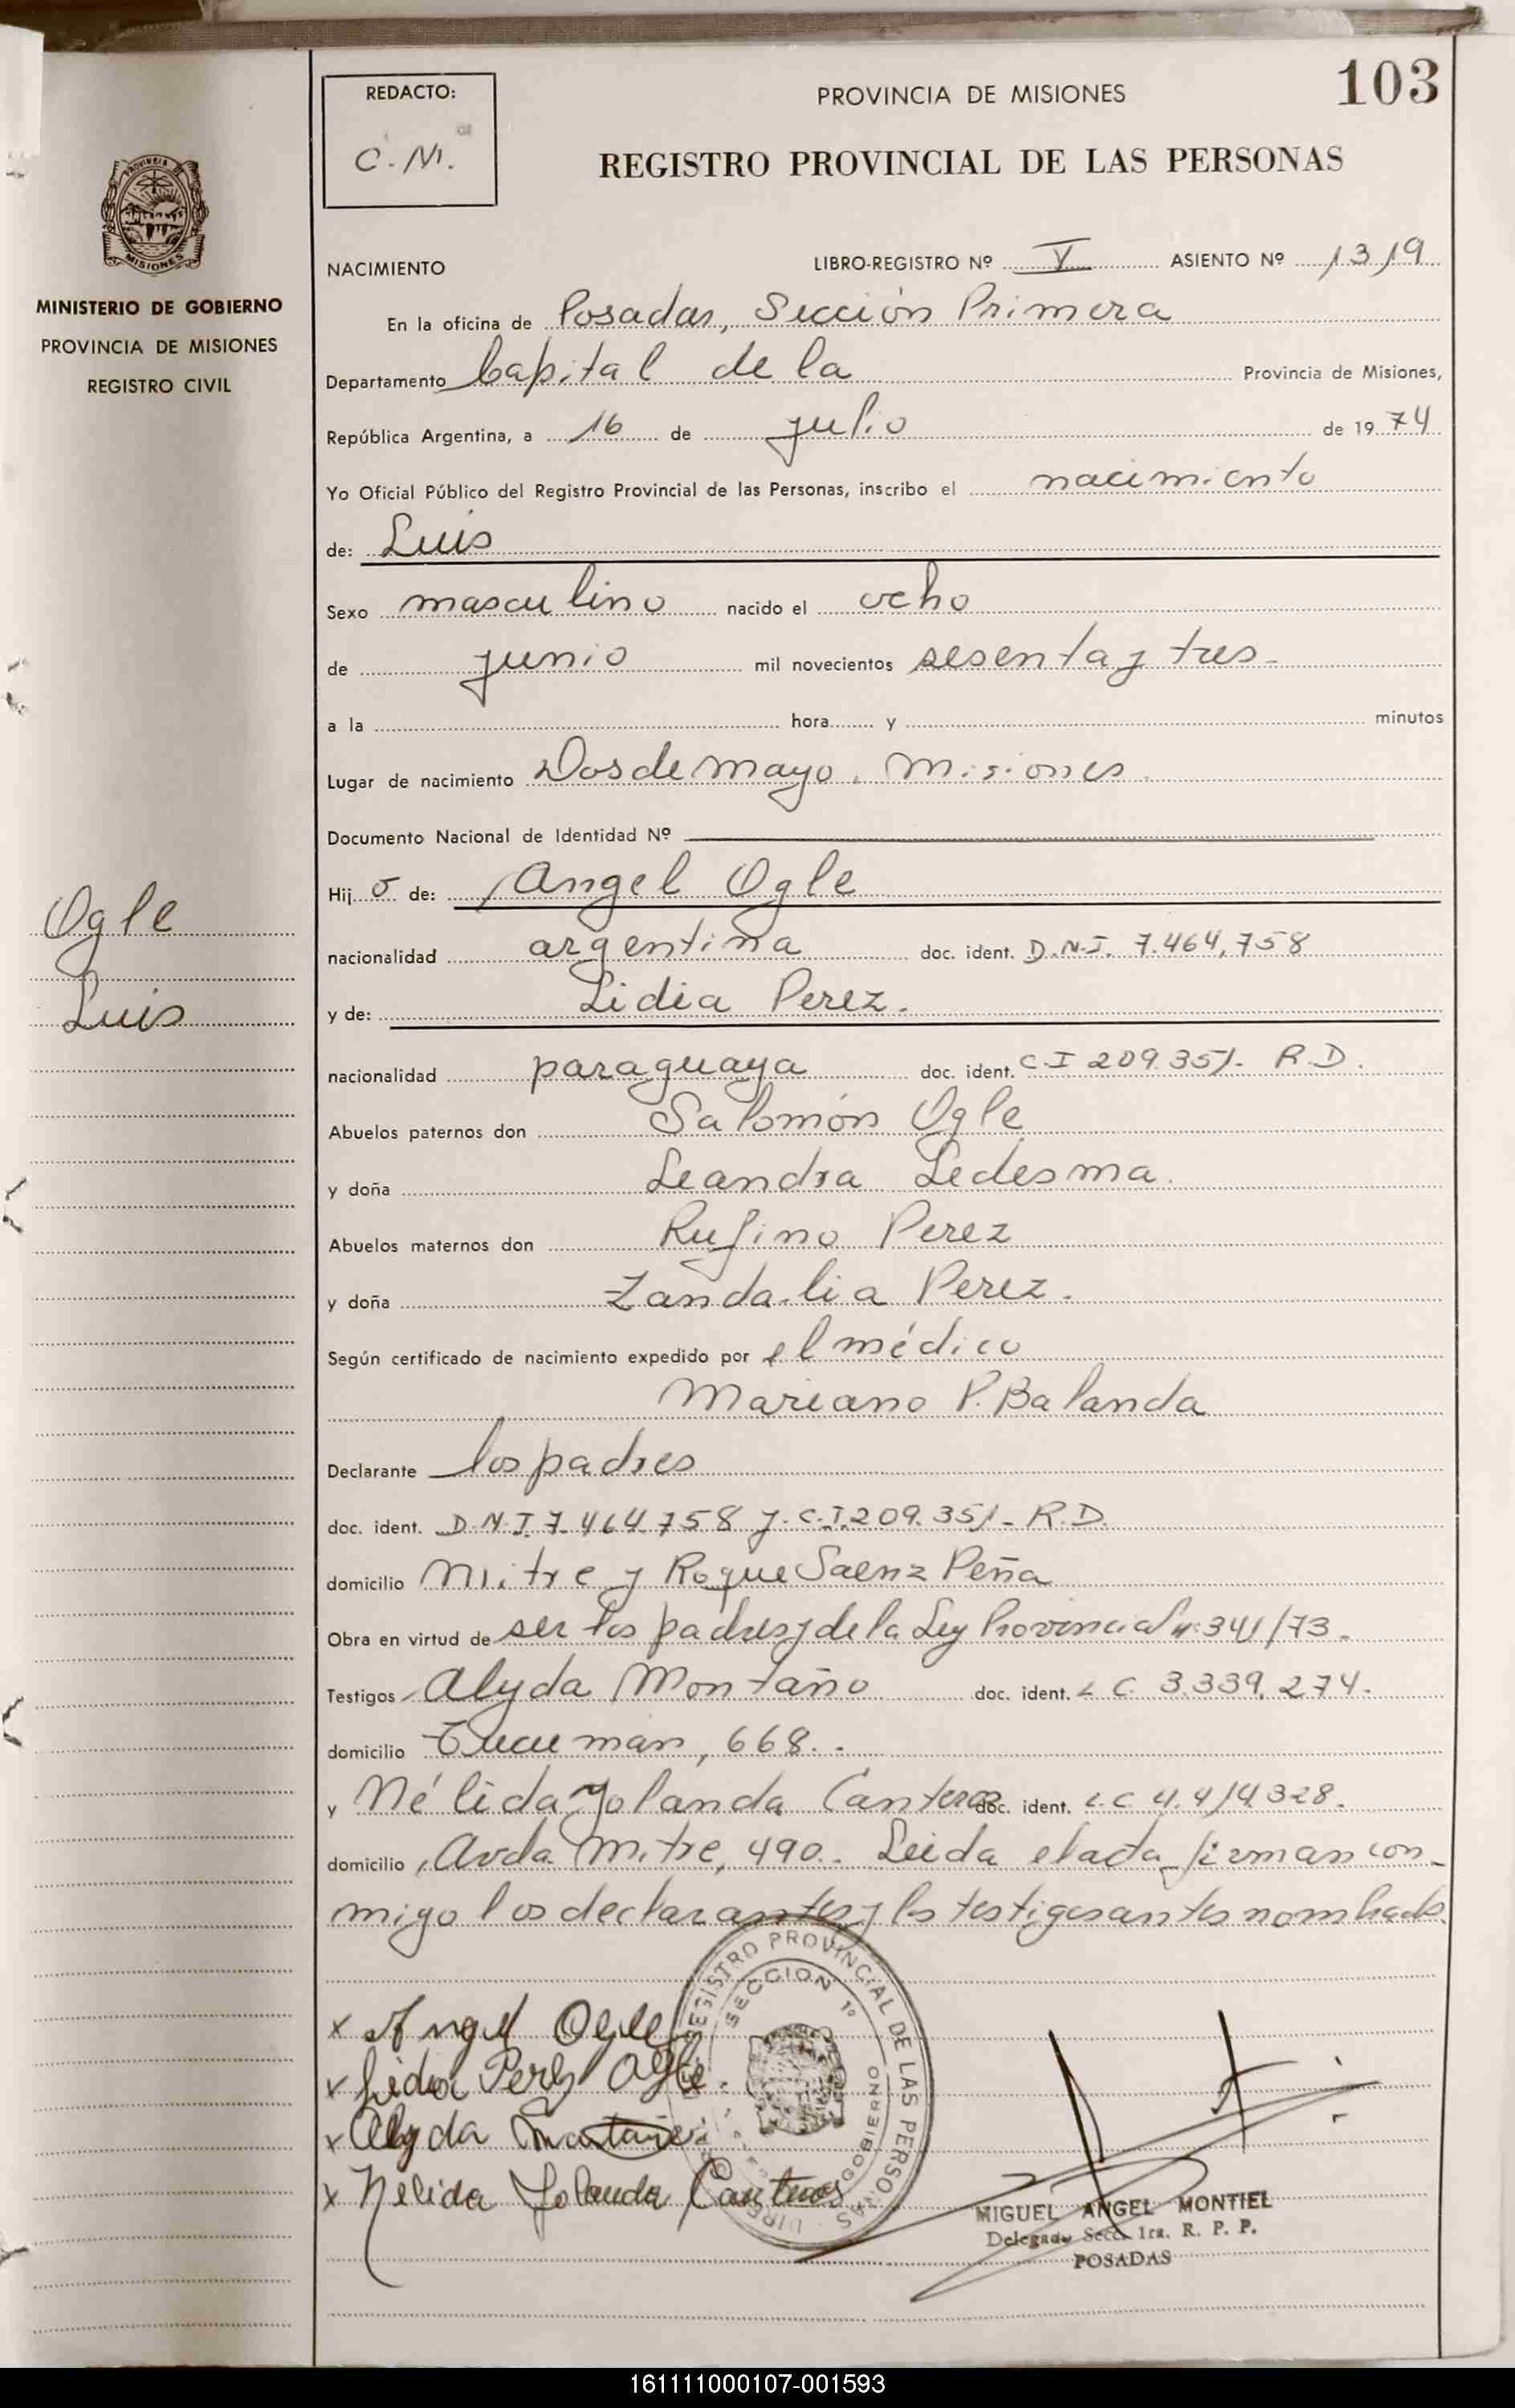 103
REDACTO:
C. M.
PROVINCIA DE MISIONES
REGISTRO PROVINCIAL DE LAS PERSONAS
PROVINCIA
MISIONES
MINISTERIO DE GOBIERNO
PROVINCIA DE MISIONES
REGISTRO CIVIL
NACIMIENTO LIBRO-REGISTRO Nº V ASIENTO Nº 1319
En la oficina de Posadas, Sección Primera
Departamento Capital de la Provincia de Misiones,
República Argentina, a 16 de julio de 1974
Yo Oficial Público del Registro Provincial de las Personas, inscribo el nacimiento
de: Luis
Sexo masculino nacido el ocho
de junio mil novecientos sesenta y tres-
a la hora y minutos
Lugar de nacimiento Dos de mayo. Misiones.
Documento Nacional de Identidad Nº
Hijo de: Angel Ogle
Ogle
Luis
nacionalidad argentina doc. ident. D.N.I. 7.464,758
y de: Lidia Perez.
nacionalidad paraguaya doc. ident. C.I 209.351- R.D.
Abuelos paternos don Salomón Ogle
y doña Leandra Ledesma.
Abuelos maternos don Rufino Perez
y doña Zandalia Perez.
Según certificado de nacimiento expedido por el médico
Mariano P. Balanda
Declarante los padres
doc. ident. D.N.I 7.464.758 y C.I. 209.351- R.D.
domicilio Mitre y Roque Saenz Peña
Obra en virtud de ser los padres y de la Ley Provincial nº 341/73.
Testigos Alyda Montaño doc. ident. L C. 3.339.274.
domicilio Tucuman, 668.-
y Nélida Yolanda Canteros doc. ident. L.C 4.414328.
domicilio Avda Mitre, 490.- Leida el acta firman con-
migo los declarantes y los testigos antes nombrados.
x Angel Ogle
x Lidia Perez Ogle.
x Alyda Montaño
x Nelida Yolanda Canteros
REGISTRO PROVINCIAL DE LAS PERSONAS
SECCION 1º
GOBIERNO
MIGUEL ANGEL MONTIEL
Delegado Secc. 1ra. R. P. P.
POSADAS
161111000107-001593